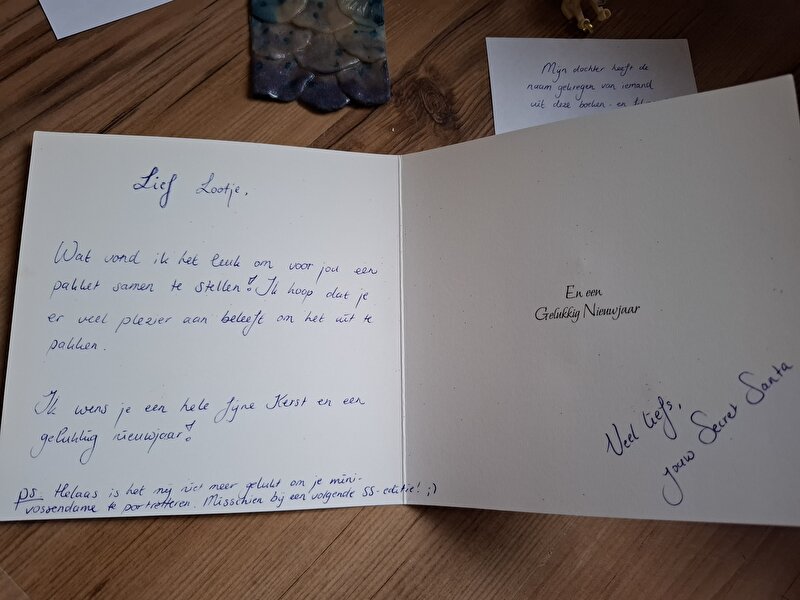 Mijn dochter heeft de
naam gekregen van iemand
uit deze boeken - en
Lief Lootje,
Wat vond ik het leuk om voor jou een
pakket samen te stellen! Ik hoop dat je
er veel plezier aan beleeft om het uit te
pakken.
Ik wens je een hele fijne Kerst en een
gelukkig nieuwjaar!
ps. Helaas is het mij niet meer gelukt om je mini-
vossendame te portretteren. Misschien bij een volgende SS-editie! ;)
En een
Gelukkig Nieuwjaar
Veel liefs,
jouw Secret Santa